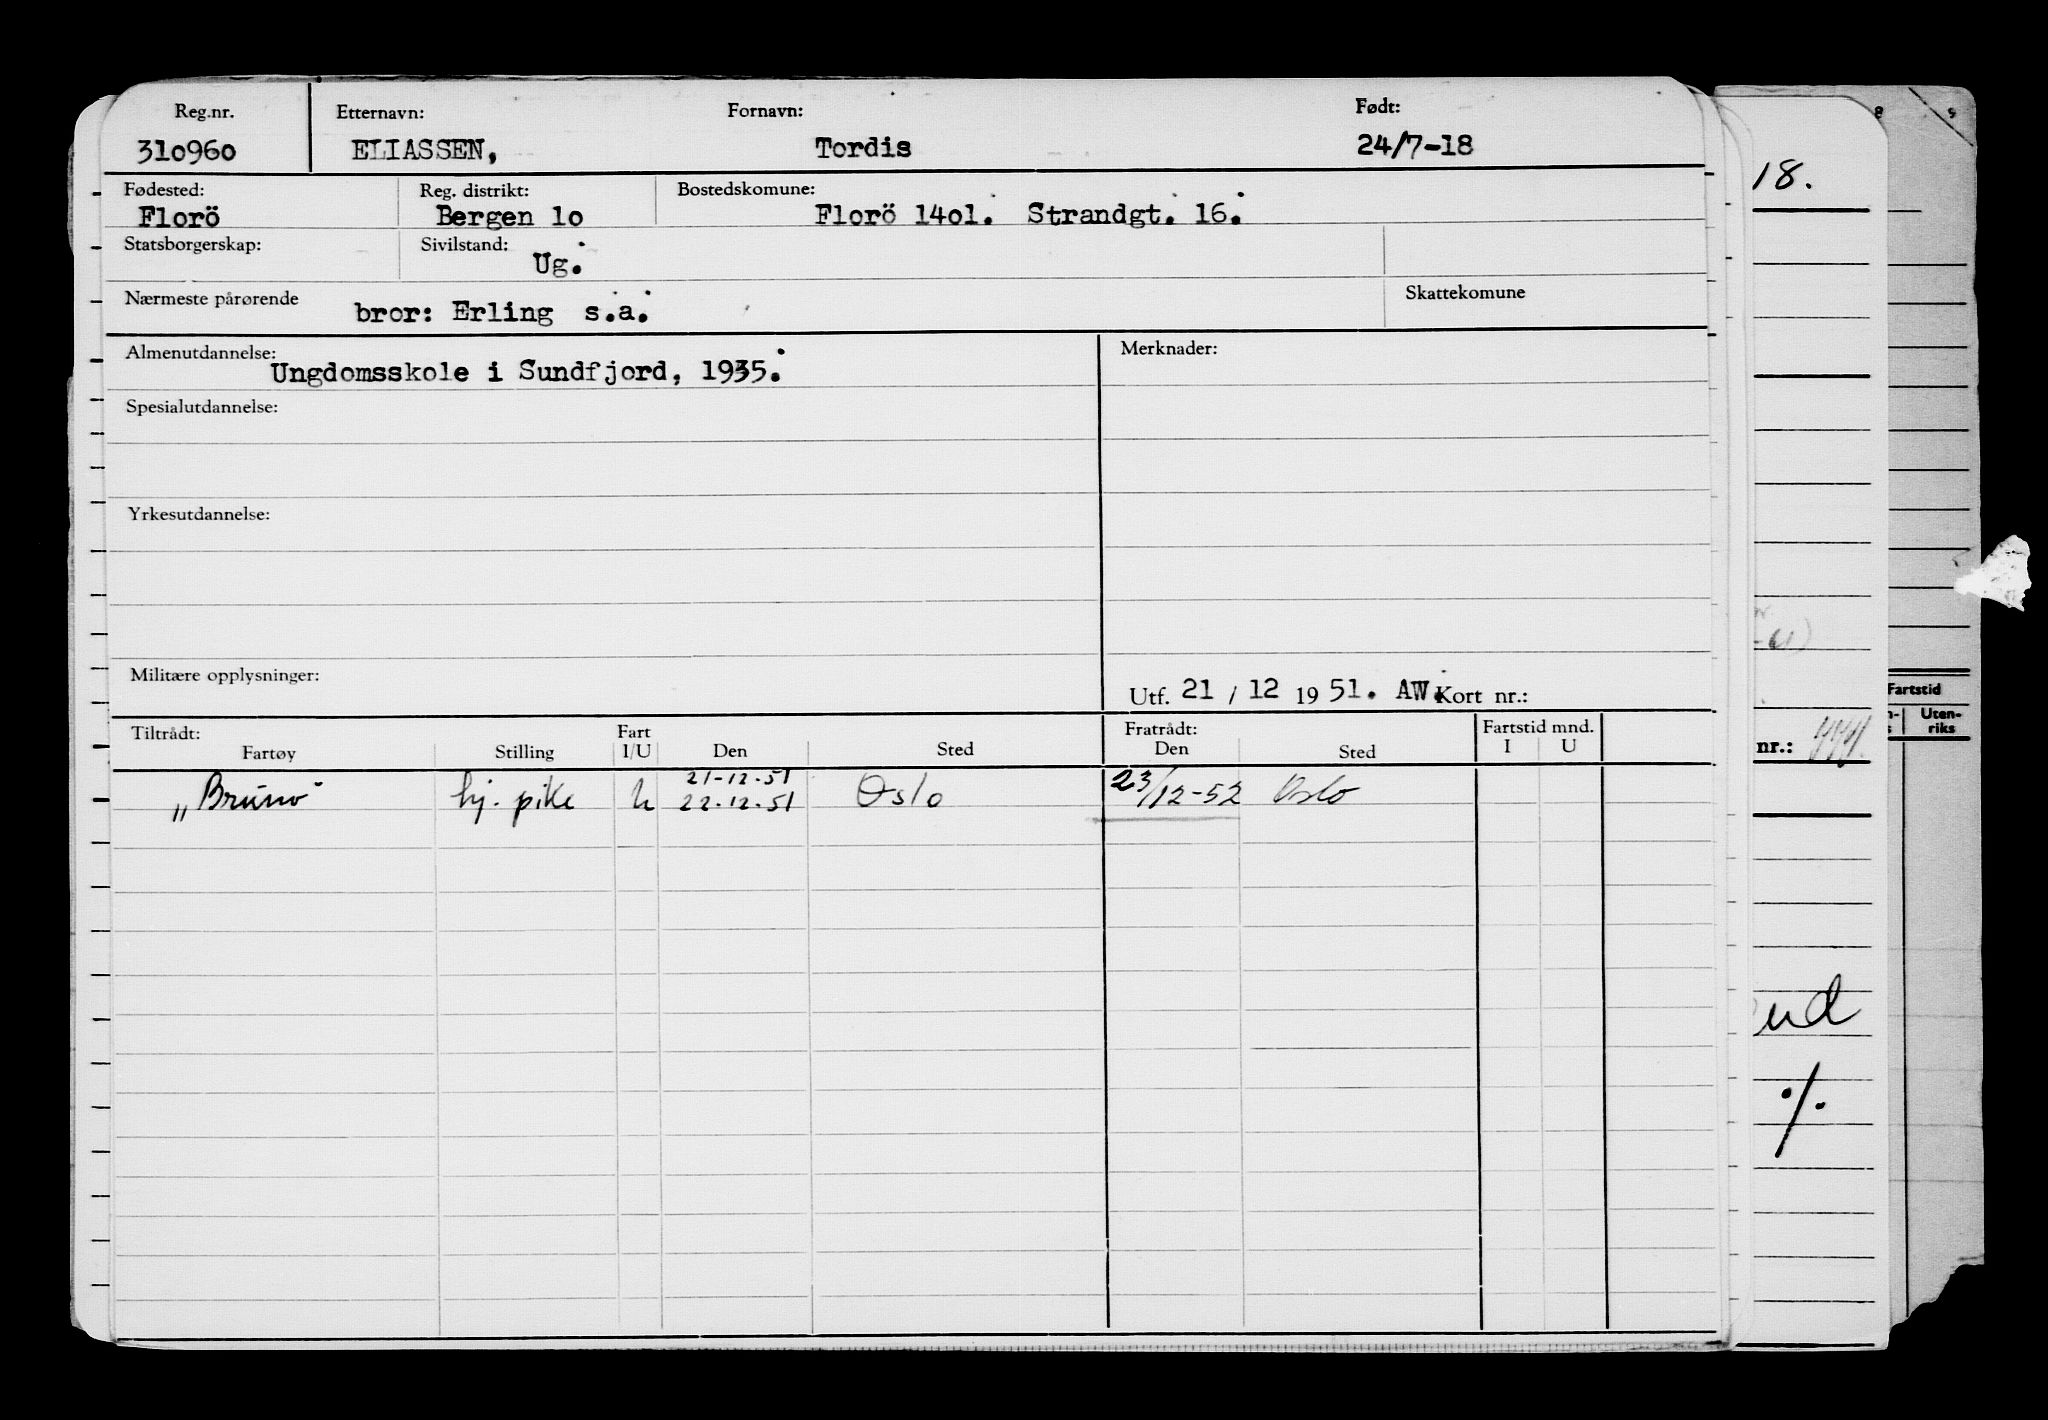 Reg.nr. Etternavn: Fornavn: Født:
310960 ELIASSEN, Tordis 24/7-18
Fødested: Reg. distrikt: Bostedskomune:
Florö Bergen 10 Florö 1401. Strandgt. 16.
Statsborgerskap: Sivilstand:
Ug.
Nærmeste pårørende Skattekomune
bror: Erling s.a.
Almenutdannelse: Merknader:
Ungdomsskole i Sundfjord, 1935.
Spesialutdannelse:
Yrkesutdannelse:
Militære opplysninger:
Utf. 21 / 12 19 51. AW. Kort nr.:
Tiltrådt: Fart Fratrådt: Fartstid mnd.
Fartøy Stilling I/U Den Sted Den Sted I U
21-12-51
„Bruno" hj. pike U 22-12-51 Oslo 23/12-52 Oslo
8 9
18.
Fartstid
Uten-
riks
nr.:
end
./.